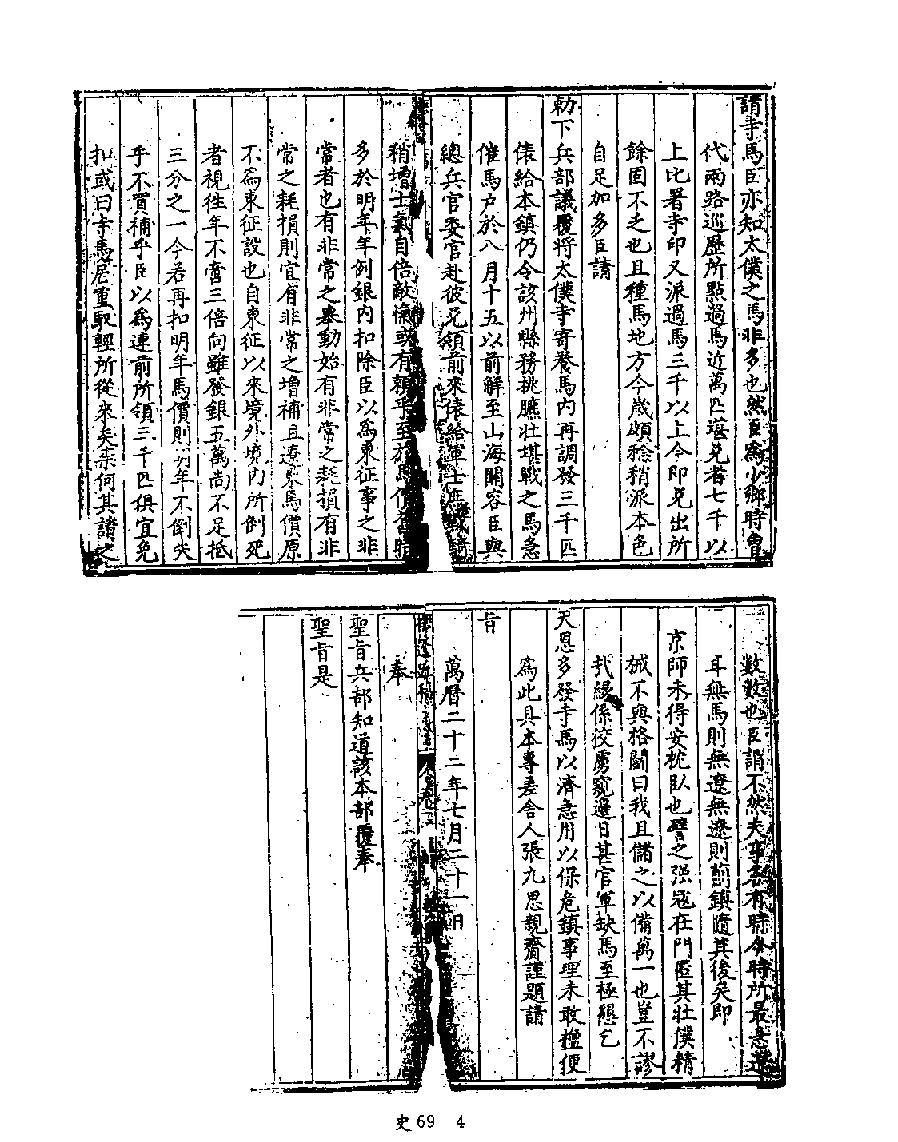 請寺馬臣亦知太僕之馬非多也然臣爲少卿時會
代兩路巡歷所點過馬近萬匹選兌者七千以
上比署寺印又派過馬三千以上今即兌出所
餘固不乏也且種馬地方今歲頗稔稍派本色
自足加多臣請
勑下兵部議覆將太僕寺寄養馬內再調發三千匹
俵給本鎮仍令該州縣務挑臕壯堪戰之馬急
催馬戶於八月十五以前解至山海關容臣與
總兵官委官赴彼兌領前來俵給軍士庶
稍增士氣自倍敵愾或有賴乎至於馬價
多於明年年例銀內扣除臣以爲東征事之非
常者也有非常之舉動始有非常之耗損有非
常之耗損則宜有非常之增補且遼東馬價原
不爲東征設也自東征以來境外境內所倒死
者視往年不啻三倍向雖發銀五萬尚不足抵
三分之一今若再扣明年馬價則明年不倒失
乎不買補乎臣以爲連前所領三千匹俱宜免
扣或曰寺馬居重馭輕所從來矣柰何其請之
數數也臣謂不然夫事各有時今時所最急遼
耳無馬則無遼無遼則薊鎮隨其後矣即
京師未得安枕臥也譬之强寇在門匿其壯僕精
械不與格鬭曰我且儲之以備萬一也豈不謬
哉緣係狡虜窺邊日甚官軍缺馬至極懇乞
天恩多發寺馬以濟急用以保危鎮事理未敢擅便
爲此具本專差舍人張九思親齎謹題請
旨
萬曆二十二年七月二十一日
奉
聖旨兵部知道該本部覆奉
聖旨是
史69 4